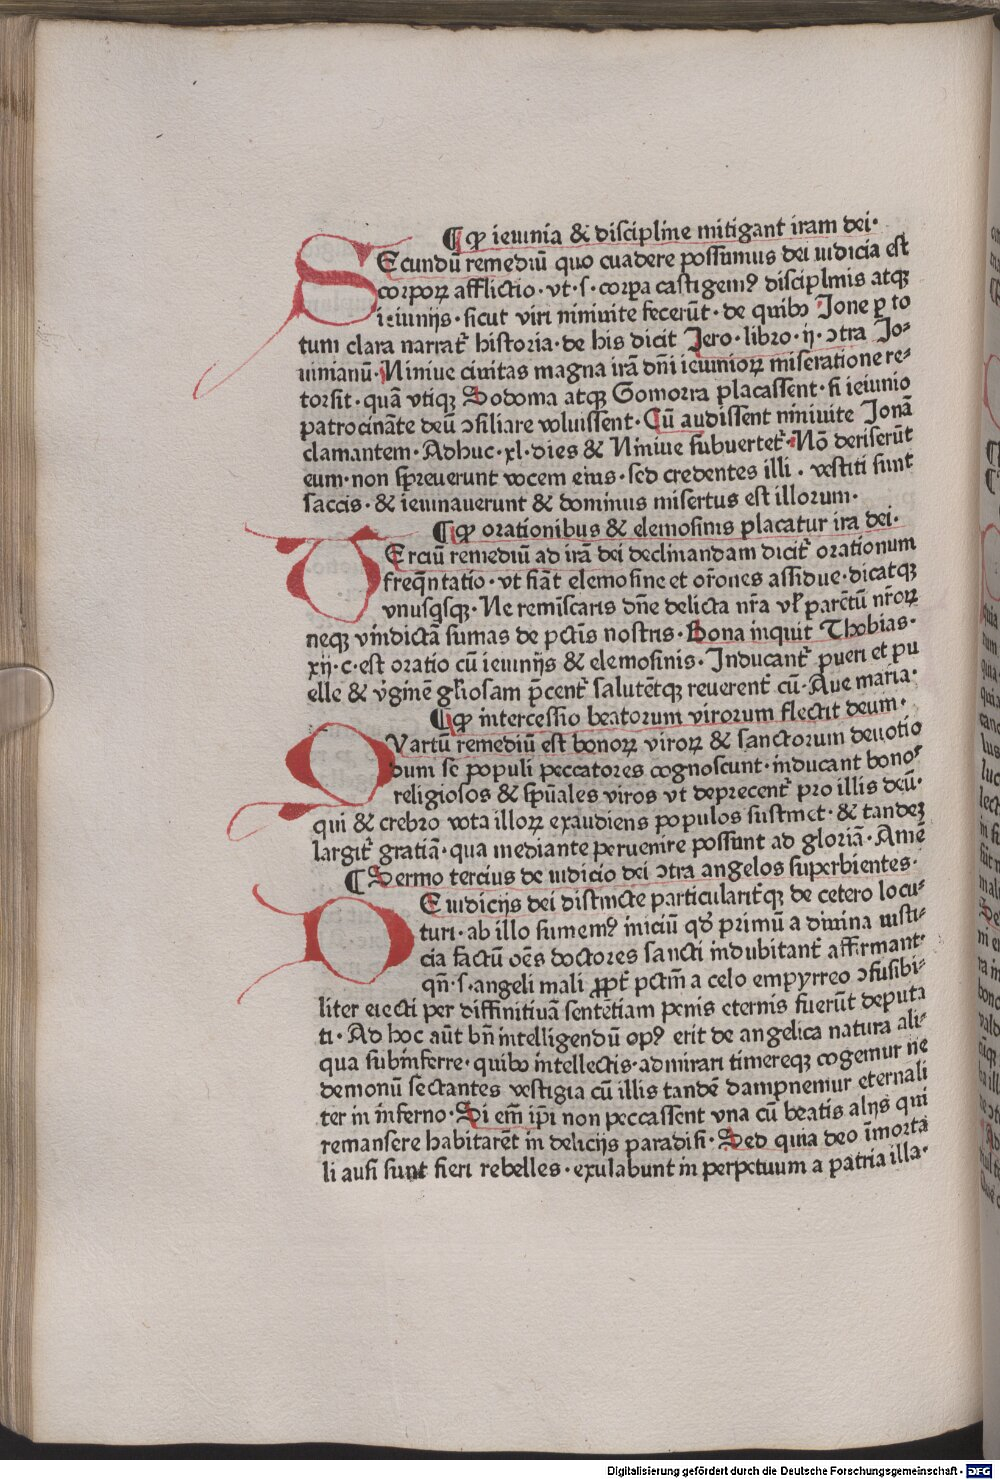 ¶ ꝙ ieiunia & discipline mitigant iram dei·
SEcundū remediū quo euadere possumus dei iudicia est
corporꝝ afflictio·vt·s·corpa castigemꝰ disciplinis atqꝫ
ieiunijs·sicut viri niniuite fecerūt·de quibꝰ Jone ꝑ to
tum clara narrat̉ historia·de his dicit Jero·libro·ij·ↄtra Jo-
uinianū·Niniue ciuitas magna irā dn̄i ieiuniorꝝ miseratione re-
torsit·quā vtiqꝫ Sodoma atqꝫ Gomorra placassent·si ieiunio
patrocināte deū ↄsiliare voluissent·Cū audissent niniuite Jonā
clamantem·Adhuc·xl·dies & Niniue subuertet̉·Nō deriserūt
eum·non spreuerunt vocem eius·sed credentes illi·vestiti sunt
saccis·& ieiunauerunt & dominus misertus est illorum·
¶ ꝙ orationibus & elemosinis placatur ira dei·
TErciū remediū ad irā dei declinandam dicit̉ orationum
freq̄ntatio·vt fiāt elemosine et or̄ones assidue·dicatqꝫ
vnusqsqꝫ·Ne reminscaris dn̄e delicta nr̄a vl̓ parētū nr̄orꝝ
neqꝫ vindictā sumas de pctīs nostris·Bona inquit Thobias·
xij·c·est oratio cū ieiunijs & elemosinis·Inducant̉ pueri et pu
elle & v̓ginē gl̓iosam p̄cent̉ salutētqꝫ reuerent̉ cū·Aue maria·
¶ ꝙ intercessio beatorum virorum flectit deum·
QVartū remediū est bonorꝝ virorꝝ & sanctorum deuotio
dum se populi peccatores cognoscunt·inducant bonos
religiosos & spūales viros vt deprecent̉ pro illis deū·
qui & crebro vota illorꝝ exaudiens populos sustinet·& tandeꝫ
largit̉ gratiā·qua mediante peruenire possunt ad gloriā·Amē
¶ Sermo tercius de iudicio dei ↄtra angelos superbientes·
DE iudicijs dei distincte particularit̉qꝫ de cetero locu-
turi·ab illo sumemꝰ iniciū qd̓ primū a diuina iusti-
cia factū oēs doctores sancti indubitant̉ affirmant·
qn̄·s·angeli mali ꝓpt̉ pctm̄ a celo empyrreo ↄfusibi-
liter eiecti per diffinitiuā sentētiam penis eternis fuerūt deputa
ti·Ad hoc aūt bn̄ intelligendū opꝰ erit de angelica natura ali-
qua subinferre·quibꝰ intellectis·admirari timereqꝫ cogemur ne
demonū sectantes vestigia cū illis tandē dampnemur eternali
ter in inferno·Si em̄ ip̄i non peccassent vna cū beatis alijs qui
remansere habitarēt in delicijs paradisi·Sed quia deo īmorta
li ausi sunt fieri rebelles·exulabunt in perpetuum a patria illa·
Digitalisierung gefördert durch die Deutsche Forschungsgemeinschaft - DFG